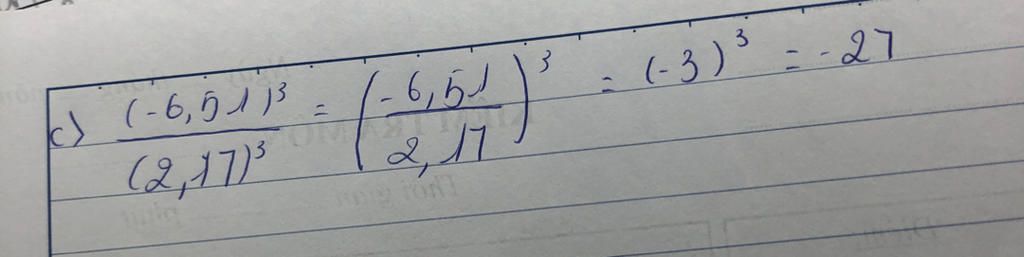 c) (-6,51)³/(2,17)³ = (-6,51/2,17)³ = (-3)³ = -27